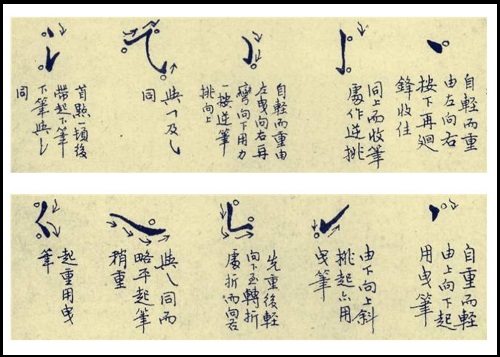 自輕而重
由左向右
按下再廻
鋒收住
同上而收筆
處作逆挑
自輕而重由
左曳向右再
彎向下用力
一按逆筆
挑向上
與㇇及㇂
同
首點一頓後
帶起下筆
下筆與㇂
同
自重而輕
由上向下起
用曳筆
由下向上斜
挑起亦用
曳筆
先重後輕
向下至轉折
處折而向右
與㇏同而
略平起筆
稍重
起重用曳
筆